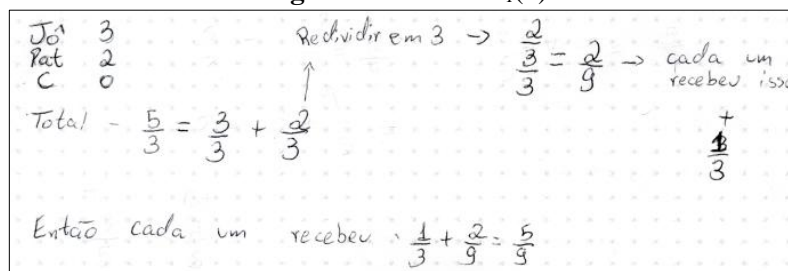 Jô 3 Redividir em 3 → 2/3/3 = 2/9 → cada um recebeu isso
Pat 2
C 0
+ 1/3
Total - 5/3 = 3/3 + 2/3
Então cada um recebeu · 1/3 + 2/9 = 5/9